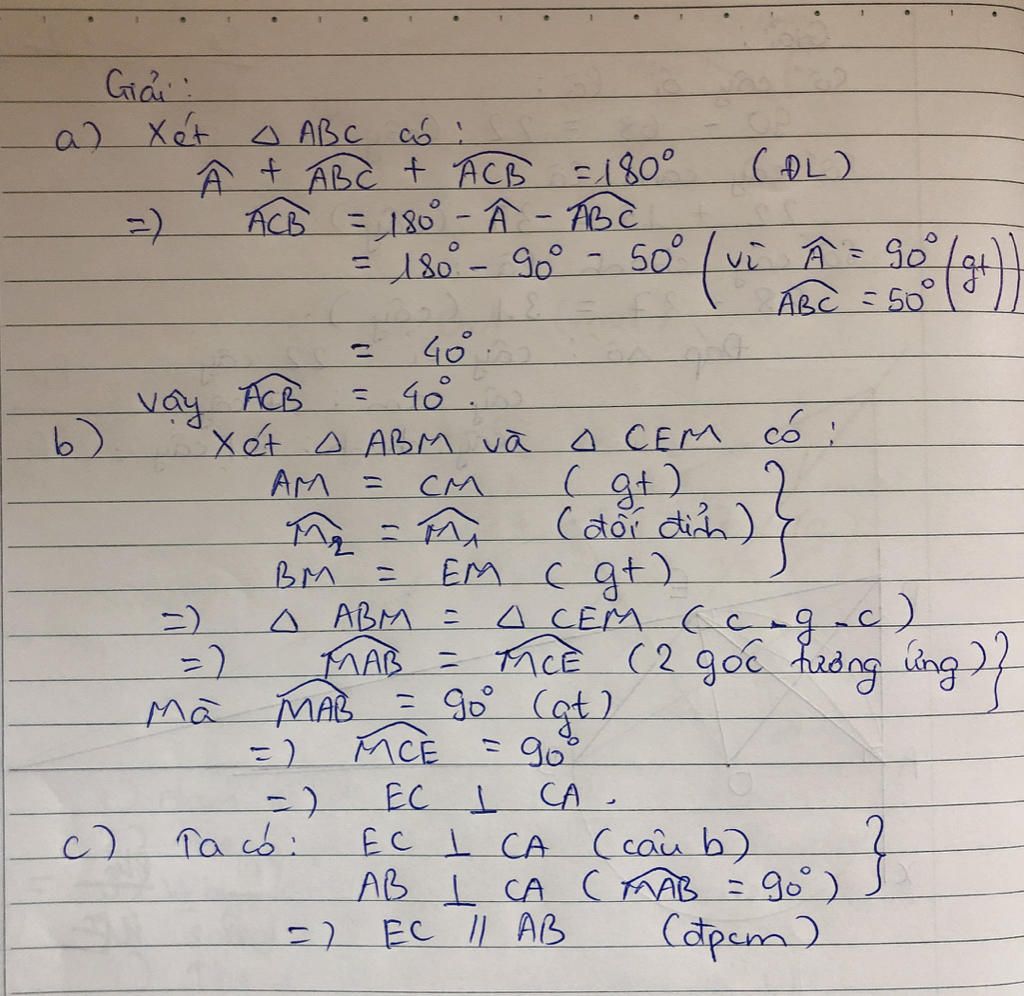 Giải:
a) Xét △ ABC có:
Â + \widehat{ABC} + \widehat{ACB} = 180° (ĐL)
=) \widehat{ACB} = 180° - Â - \widehat{ABC}
= 180° - 90° - 50° (vì Â = 90° (gt)
\widehat{ABC} = 50°)
= 40°.
vậy \widehat{ACB} = 40°.
b) Xét △ ABM và △ CEM có:
AM = CM (gt) }
\widehat{M_2} = \widehat{M_1} (đối đỉnh)
BM = EM (gt)
=) △ ABM = △ CEM (c-g-c)
=) \widehat{MAB} = \widehat{MCE} (2 góc tương ứng) }
Mà \widehat{MAB} = 90° (gt)
=) \widehat{MCE} = 90°
=) EC ⊥ CA.
c) Ta có: EC ⊥ CA (câu b) }
AB ⊥ CA (\widehat{MAB} = 90°)
=) EC // AB (đpcm)